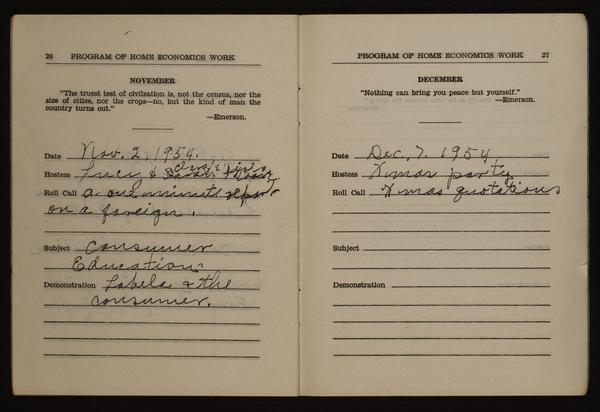 26 PROGRAM OF HOME ECONOMICS WORK
NOVEMBER
"The truest test of civilization is, not the census, nor the
size of cities, nor the crops—no, but the kind of man the
country turns out."
—Emerson.
Date Nov. 2, 1954.
Hostess Lucy &
Roll Call a one minute report
on a foreign.
Subject Consumer
Education
Demonstration Labels & the
consumer.
PROGRAM OF HOME ECONOMICS WORK 27
DECEMBER
"Nothing can bring you peace but yourself."
—Emerson.
Date Dec. 7. 1954
Hostess Xmas party
Roll Call Xmas quotations
Subject
Demonstration